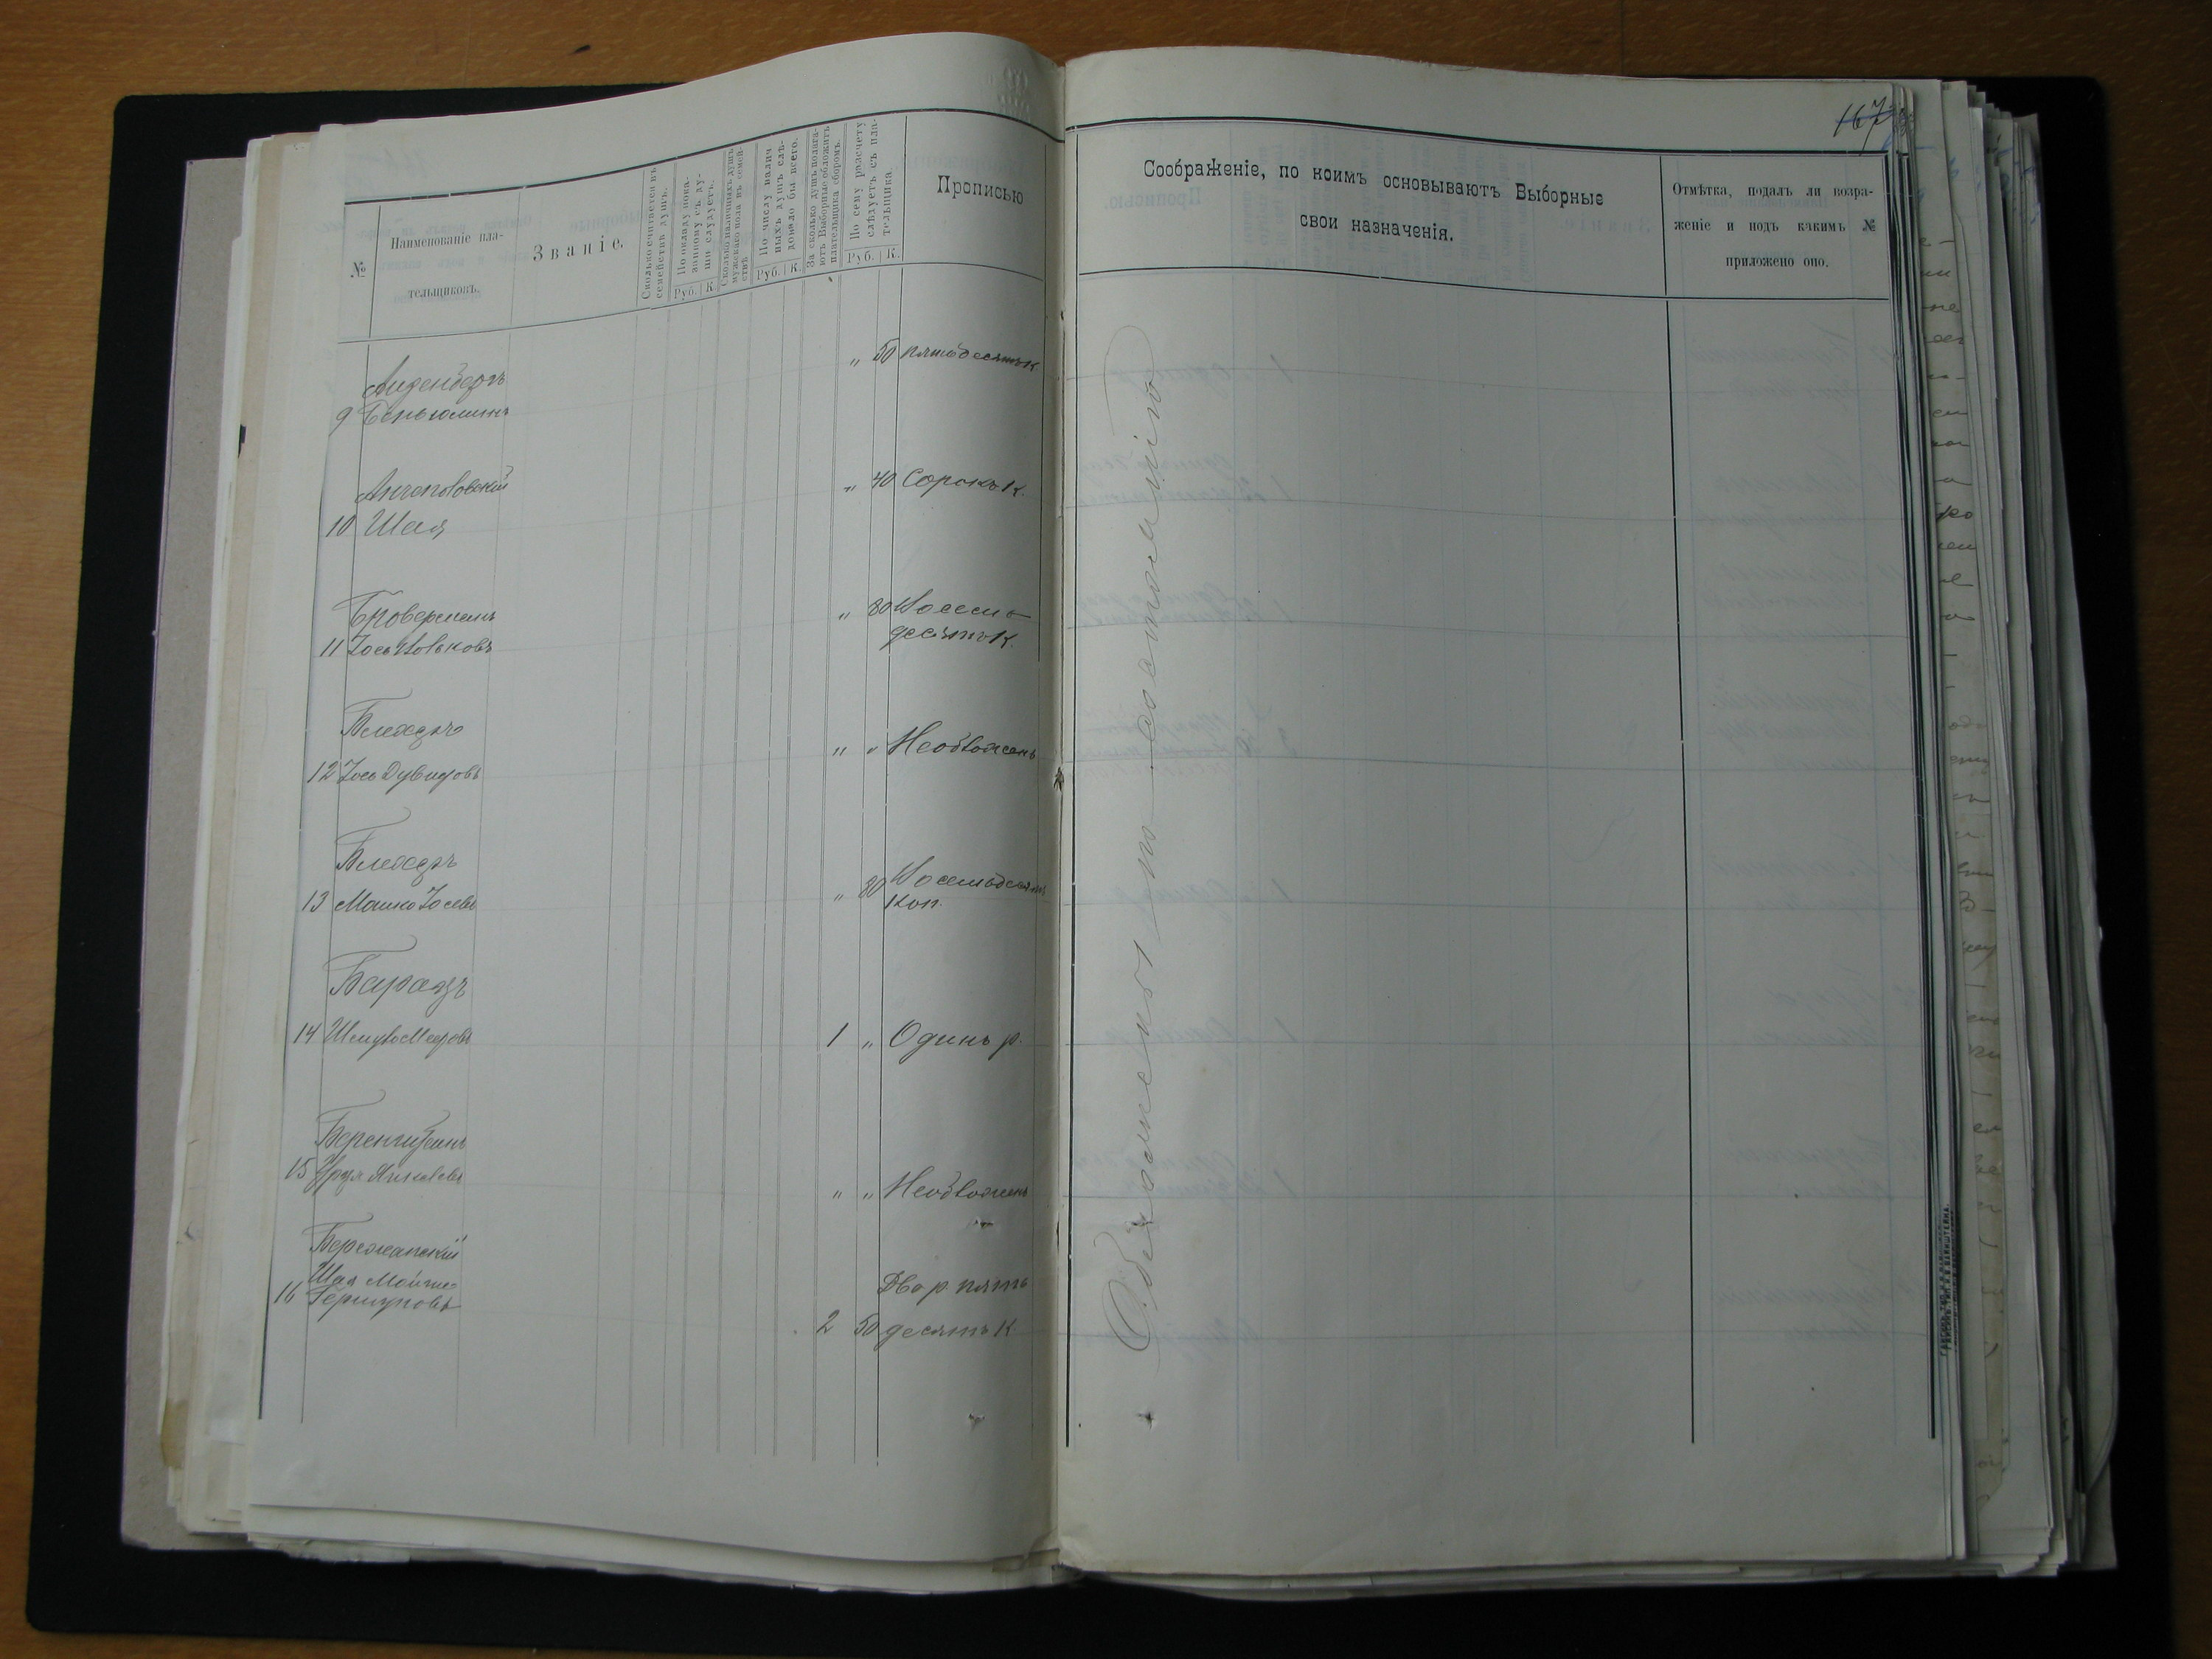 167
№
Наименованіе пла-
тельщиковъ.
Званіе.
Сколько считается въ
семействѣ душъ.
По окладу пока-
занному съ ду-
ши слѣдуетъ.
Руб. К.
Сколько наличныхъ душъ
мужескаго пола въ семей-
ствѣ
По числу налич
ныхъ душъ слѣ-
довало бы всего.
Руб. К.
За сколько душъ полага-
ютъ Выборные обложить
плательщика сборомъ.
По сему розсчету
слѣдуетъ съ пла-
тельщика.
Руб. К.
Прописью
Айзенбергъ
9 Беньюминъ
„ 50 пятьдесятъ к
10 Шая
„ 40 Сорокъ к.
Броверманъ
11 Іось Вольковъ
„ 80 Восемь
десятъ к.
Блехеръ
12 Іось Дувидовъ
„ „ Необложенъ
Блехеръ
13 Мошко Іосевъ
„ 80 Восемьдесятъ
коп.
14 Шмуль Мееровъ
1 „ Одинъ р.
Беренштейнъ
15
„ „ Необложенъ
Бережанскій
Шая Мойше-
16 Гершуновъ
Два р. пять
2 50 десятъ к
Соображеніе, по коимъ основываютъ Выборные
свои назначенія.
Обложены по состоянію
Отмѣтка, подалъ ли возра-
женіе и подъ какимъ №
приложено оно.